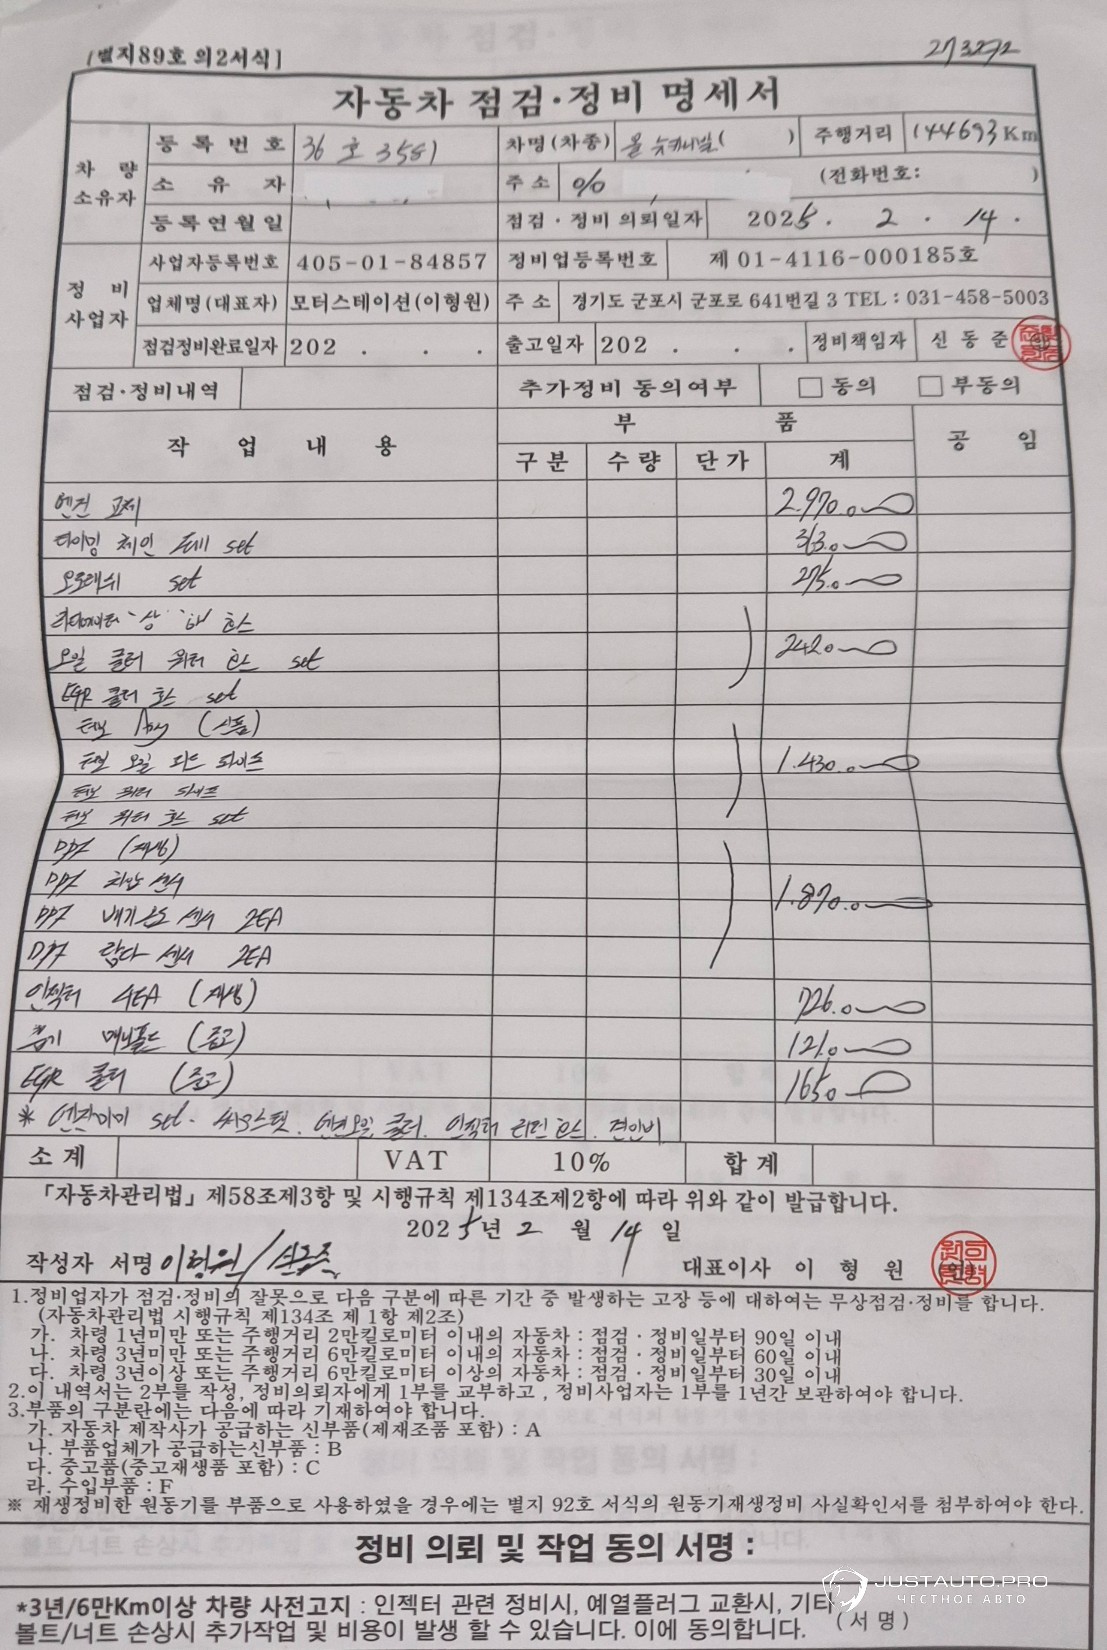 [별지89호 의2서식] 273272
자동차 점검·정비 명세서
차 량 소유자 등 록 번 호 36 호 3581 차명(차종) 올 뉴카니발 ( ) 주행거리 144693 Km
소 유 자 주 소 % (전화번호: )
등록연월일 점검·정비 의뢰일자 2025. 2 . 14 .
정 비 사업자 사업자등록번호 405-01-84857 정비업등록번호 제 01-4116-000185호
업체명(대표자) 모터스테이션(이형원) 주 소 경기도 군포시 군포로 641번길 3 TEL : 031-458-5003
점검정비완료일자 202 . . . 출고일자 202 . . . 정비책임자 신 동 준
점검·정비내역 추가정비 동의여부 □ 동의 □ 부동의
작 업 내 용 부 품 공 임
구 분 수 량 단 가 계
엔진 교체 2.970.0
타이밍 체인 set 363.0
오르래쉬 set 275.0
라디에이터 상 하 호스
오일 쿨러 워터 호스 set 242.0
EGR 쿨러 호스 set
터보 Assy (신품)
터보 오일 피드 파이프 1.430.0
터보 워터 파이프
터보 워터 호스 set
DPF (재생)
DPF 차압 센서 1.870.0
DPF 배기온도 센서 2EA
DPF 람다 센서 2EA
인젝터 4EA (재생) 726.0
흡기 매니폴드 (중고) 121.0
EGR 쿨러 (중고) 165.0
* 엔진미미 set. 써모스탯. 엔진오일 쿨러. 인젝터 리턴 호스. 견인비
소 계 VAT 10% 합 계
「자동차관리법」제58조제3항 및 시행규칙 제134조제2항에 따라 위와 같이 발급합니다.
2025년 2 월 14 일
작성자 서명 이형원/신동준 대표이사 이 형 원 (인)
1.정비업자가 점검·정비의 잘못으로 다음 구분에 따른 기간 중 발생하는 고장 등에 대하여는 무상점검·정비를 합니다.
(자동차관리법 시행규칙 제134조 제 1항 제2조)
가. 차령 1년미만 또는 주행거리 2만킬로미터 이내의 자동차 : 점검 · 정비일부터 90일 이내
나. 차령 3년미만 또는 주행거리 6만킬로미터 이내의 자동차 : 점검 · 정비일부터 60일 이내
다. 차령 3년이상 또는 주행거리 6만킬로미터 이상의 자동차 : 점검 · 정비일부터 30일 이내
2.이 내역서는 2부를 작성, 정비의뢰자에게 1부를 교부하고 , 정비사업자는 1부를 1년간 보관하여야 합니다.
3.부품의 구분란에는 다음에 따라 기재하여야 합니다.
가. 자동차 제작사가 공급하는 신부품(제재조품 포함) : A
나. 부품업체가 공급하는신부품 : B
다. 중고품(중고재생품 포함) : C
라. 수입부품 : F
※ 재생정비한 원동기를 부품으로 사용하였을 경우에는 별지 92호 서식의 원동기재생정비 사실확인서를 첨부하여야 한다.
정비 의뢰 및 작업 동의 서명 :
*3년/6만Km이상 차량 사전고지 : 인젝터 관련 정비시, 예열플러그 교환시, 기타
볼트/너트 손상시 추가작업 및 비용이 발생 할 수 있습니다. 이에 동의합니다. (서 명)
JUSTAUTO.PRO
ЧЕСТНОЕ АВТО